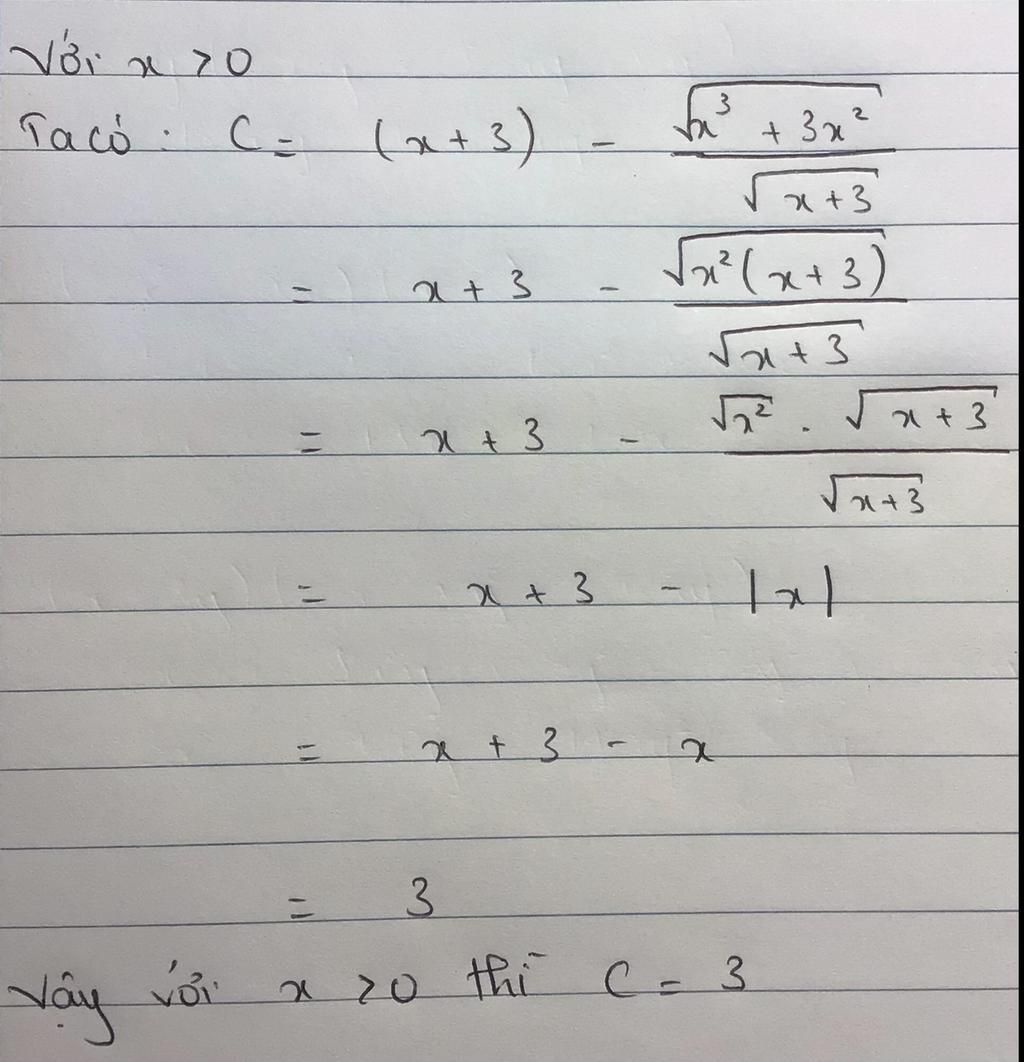 Với x > 0
Ta có : C = (x + 3) - √(x³ + 3x²) / √(x + 3)
= x + 3 - √(x²(x + 3)) / √(x + 3)
= x + 3 - √x² . √(x + 3) / √(x + 3)
= x + 3 - |x|
= x + 3 - x
= 3
Vậy với x > 0 thì C = 3